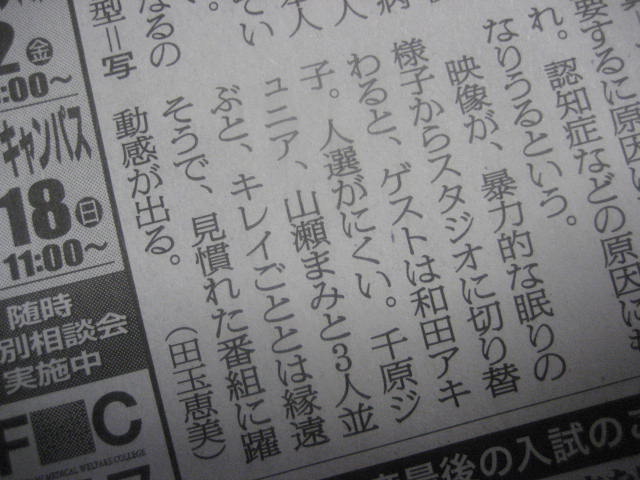 要するに原因
れ。認知症などの原因にも
なりうるという。
映像が、暴力的な眠りの
様子からスタジオに切り替
わると、ゲストは和田アキ
子。人選がにくい。千原ジ
ュニア、山瀬まみと3人並
ぶと、キレイごととは縁遠
そうで、見慣れた番組に躍
動感が出る。
（田玉恵美）
病
人
てい
なるの
型＝写
2㊎
:00〜
キャンパス
18㊐
11:00〜
随時
別相談会
実施中
F
C
MEDICAL WELFARE COLLEGE
最後の入試の